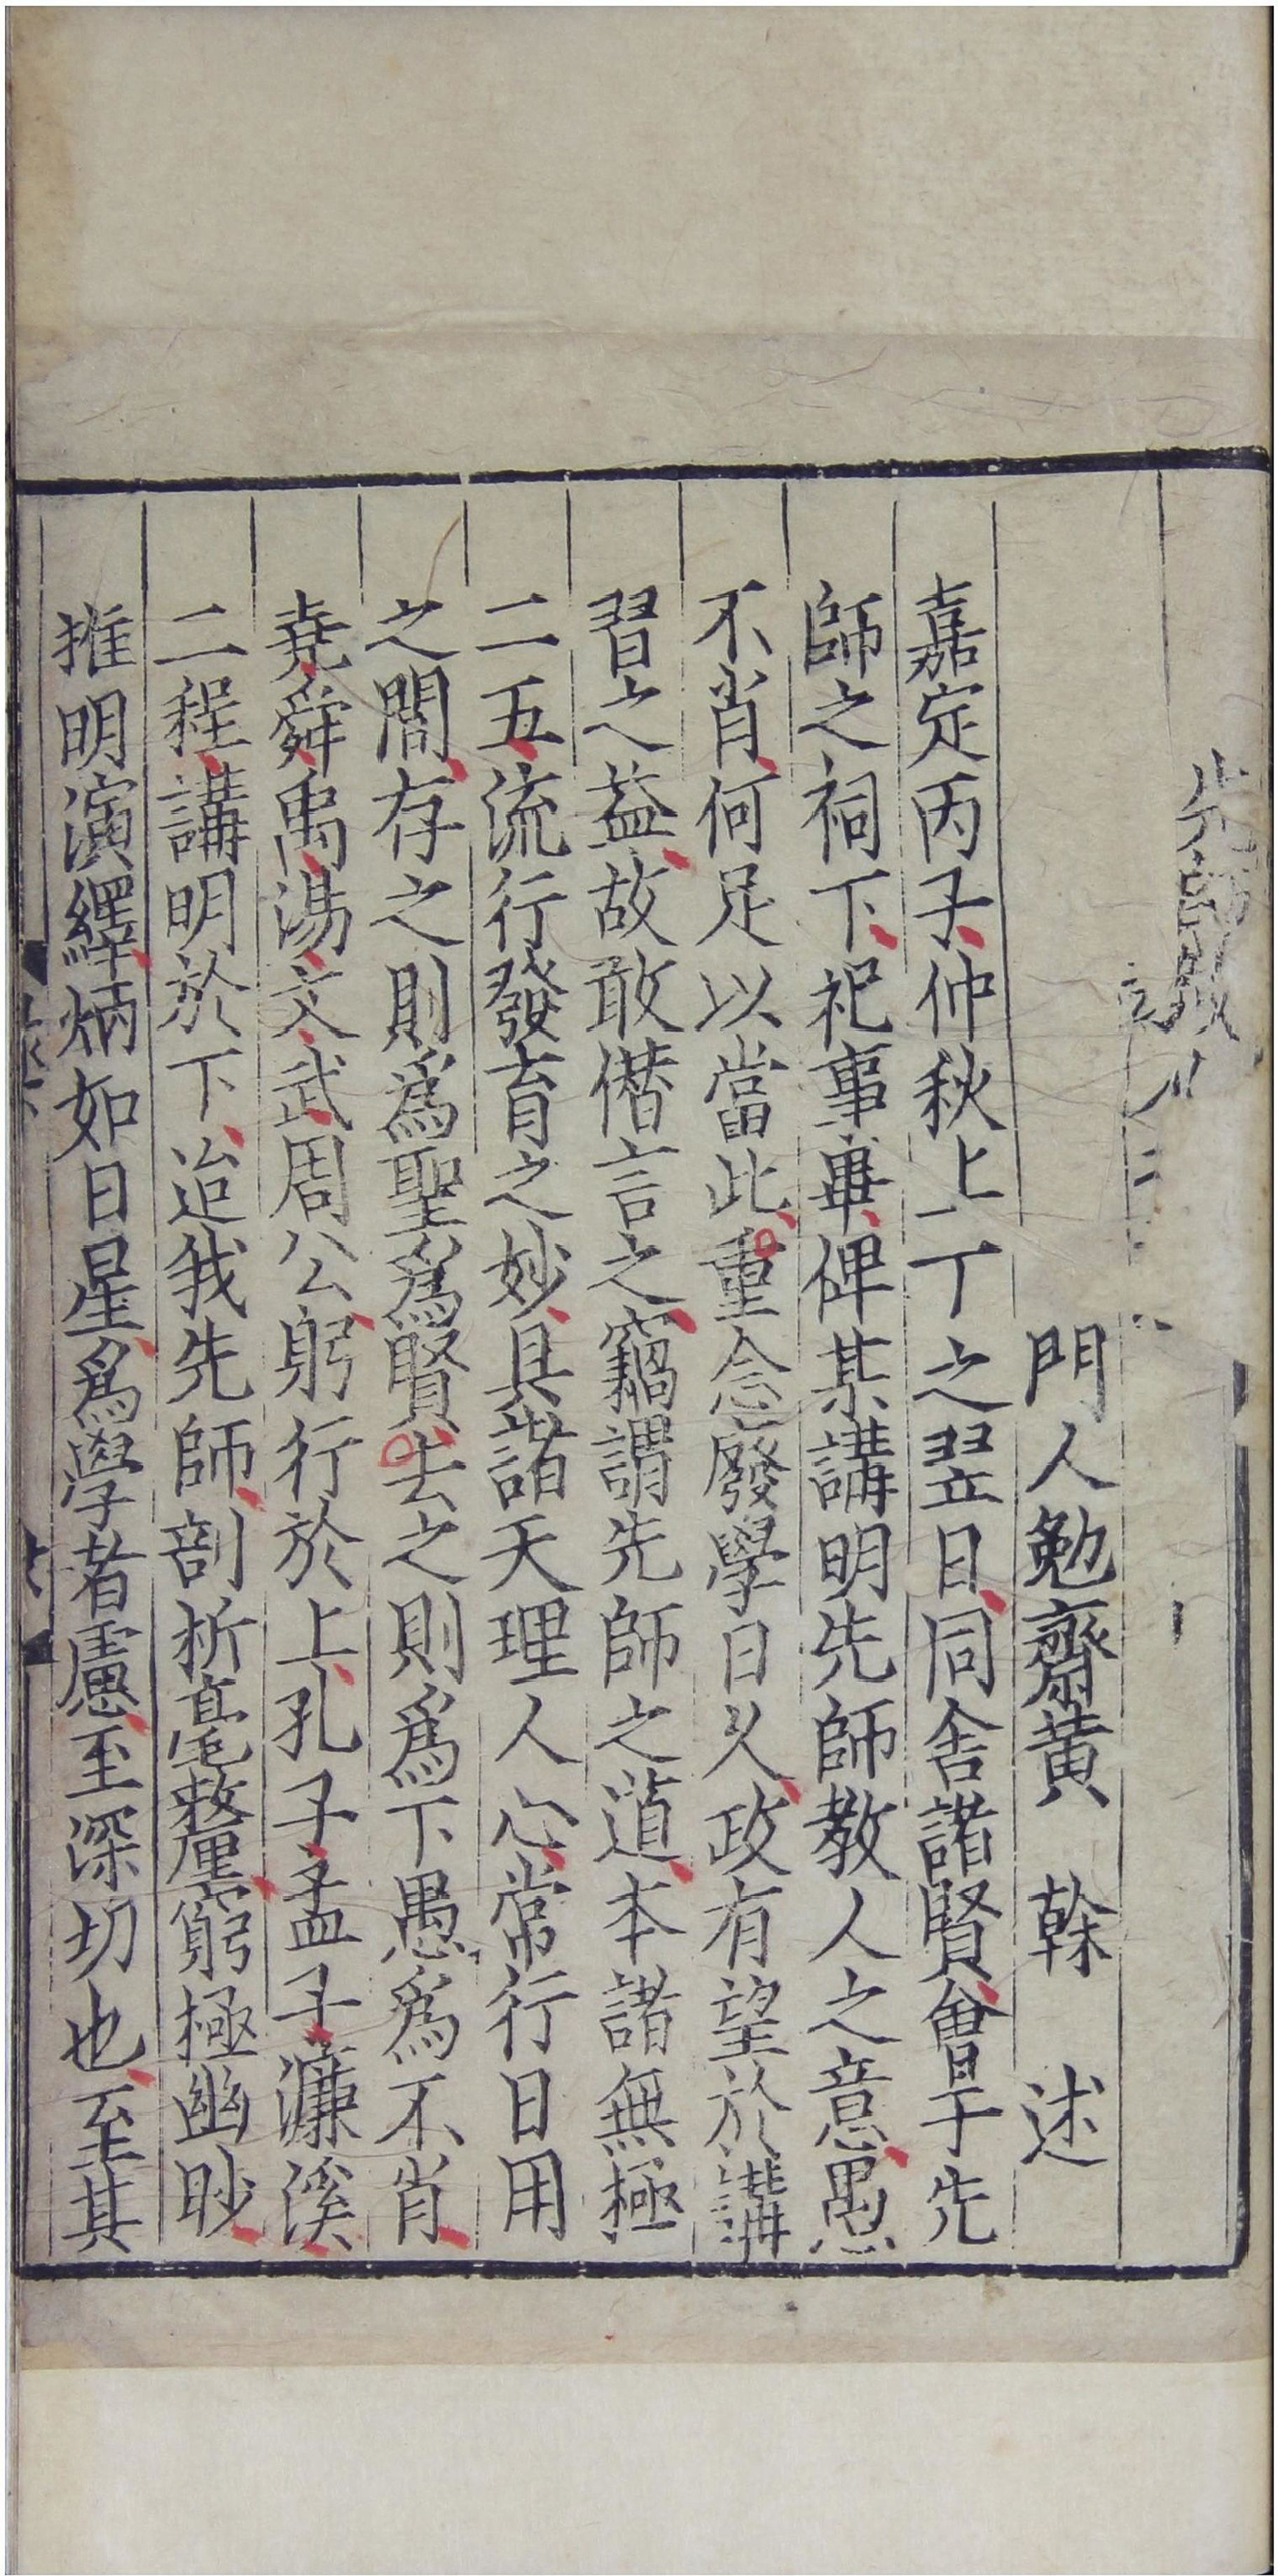 門人勉齋黃 榦 述
嘉定丙子仲秋上丁之翌日同舍諸賢會早于先
師之祠下祀事畢俾某講明先師教人之意愚
不肖何足以當此重念廢學日久政有望於講
習之益故敢僭言之竊謂先師之道本諸無極
二五流行發育之妙具諸天理人心常行日用
之間存之則爲聖爲賢去之則爲下愚爲不肖
堯舜禹湯文武周公躬行於上孔子孟子濂溪
二程講明於下迨我先師剖析毫釐窮極幽眇
推明演繹炳如日星爲學者慮至深切也至其